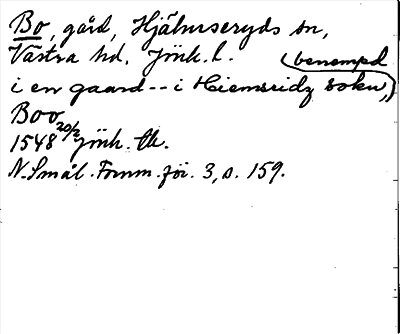 Bo, gård, Hjälmseryds sn,
Västra hd, Jönk. l.
(benempd
i en gaard -- i Hiemseidz sokn,)
Boo
1548 20/2 Jönk. tk.
N. Smål. Fornm. för. 3, s. 159.